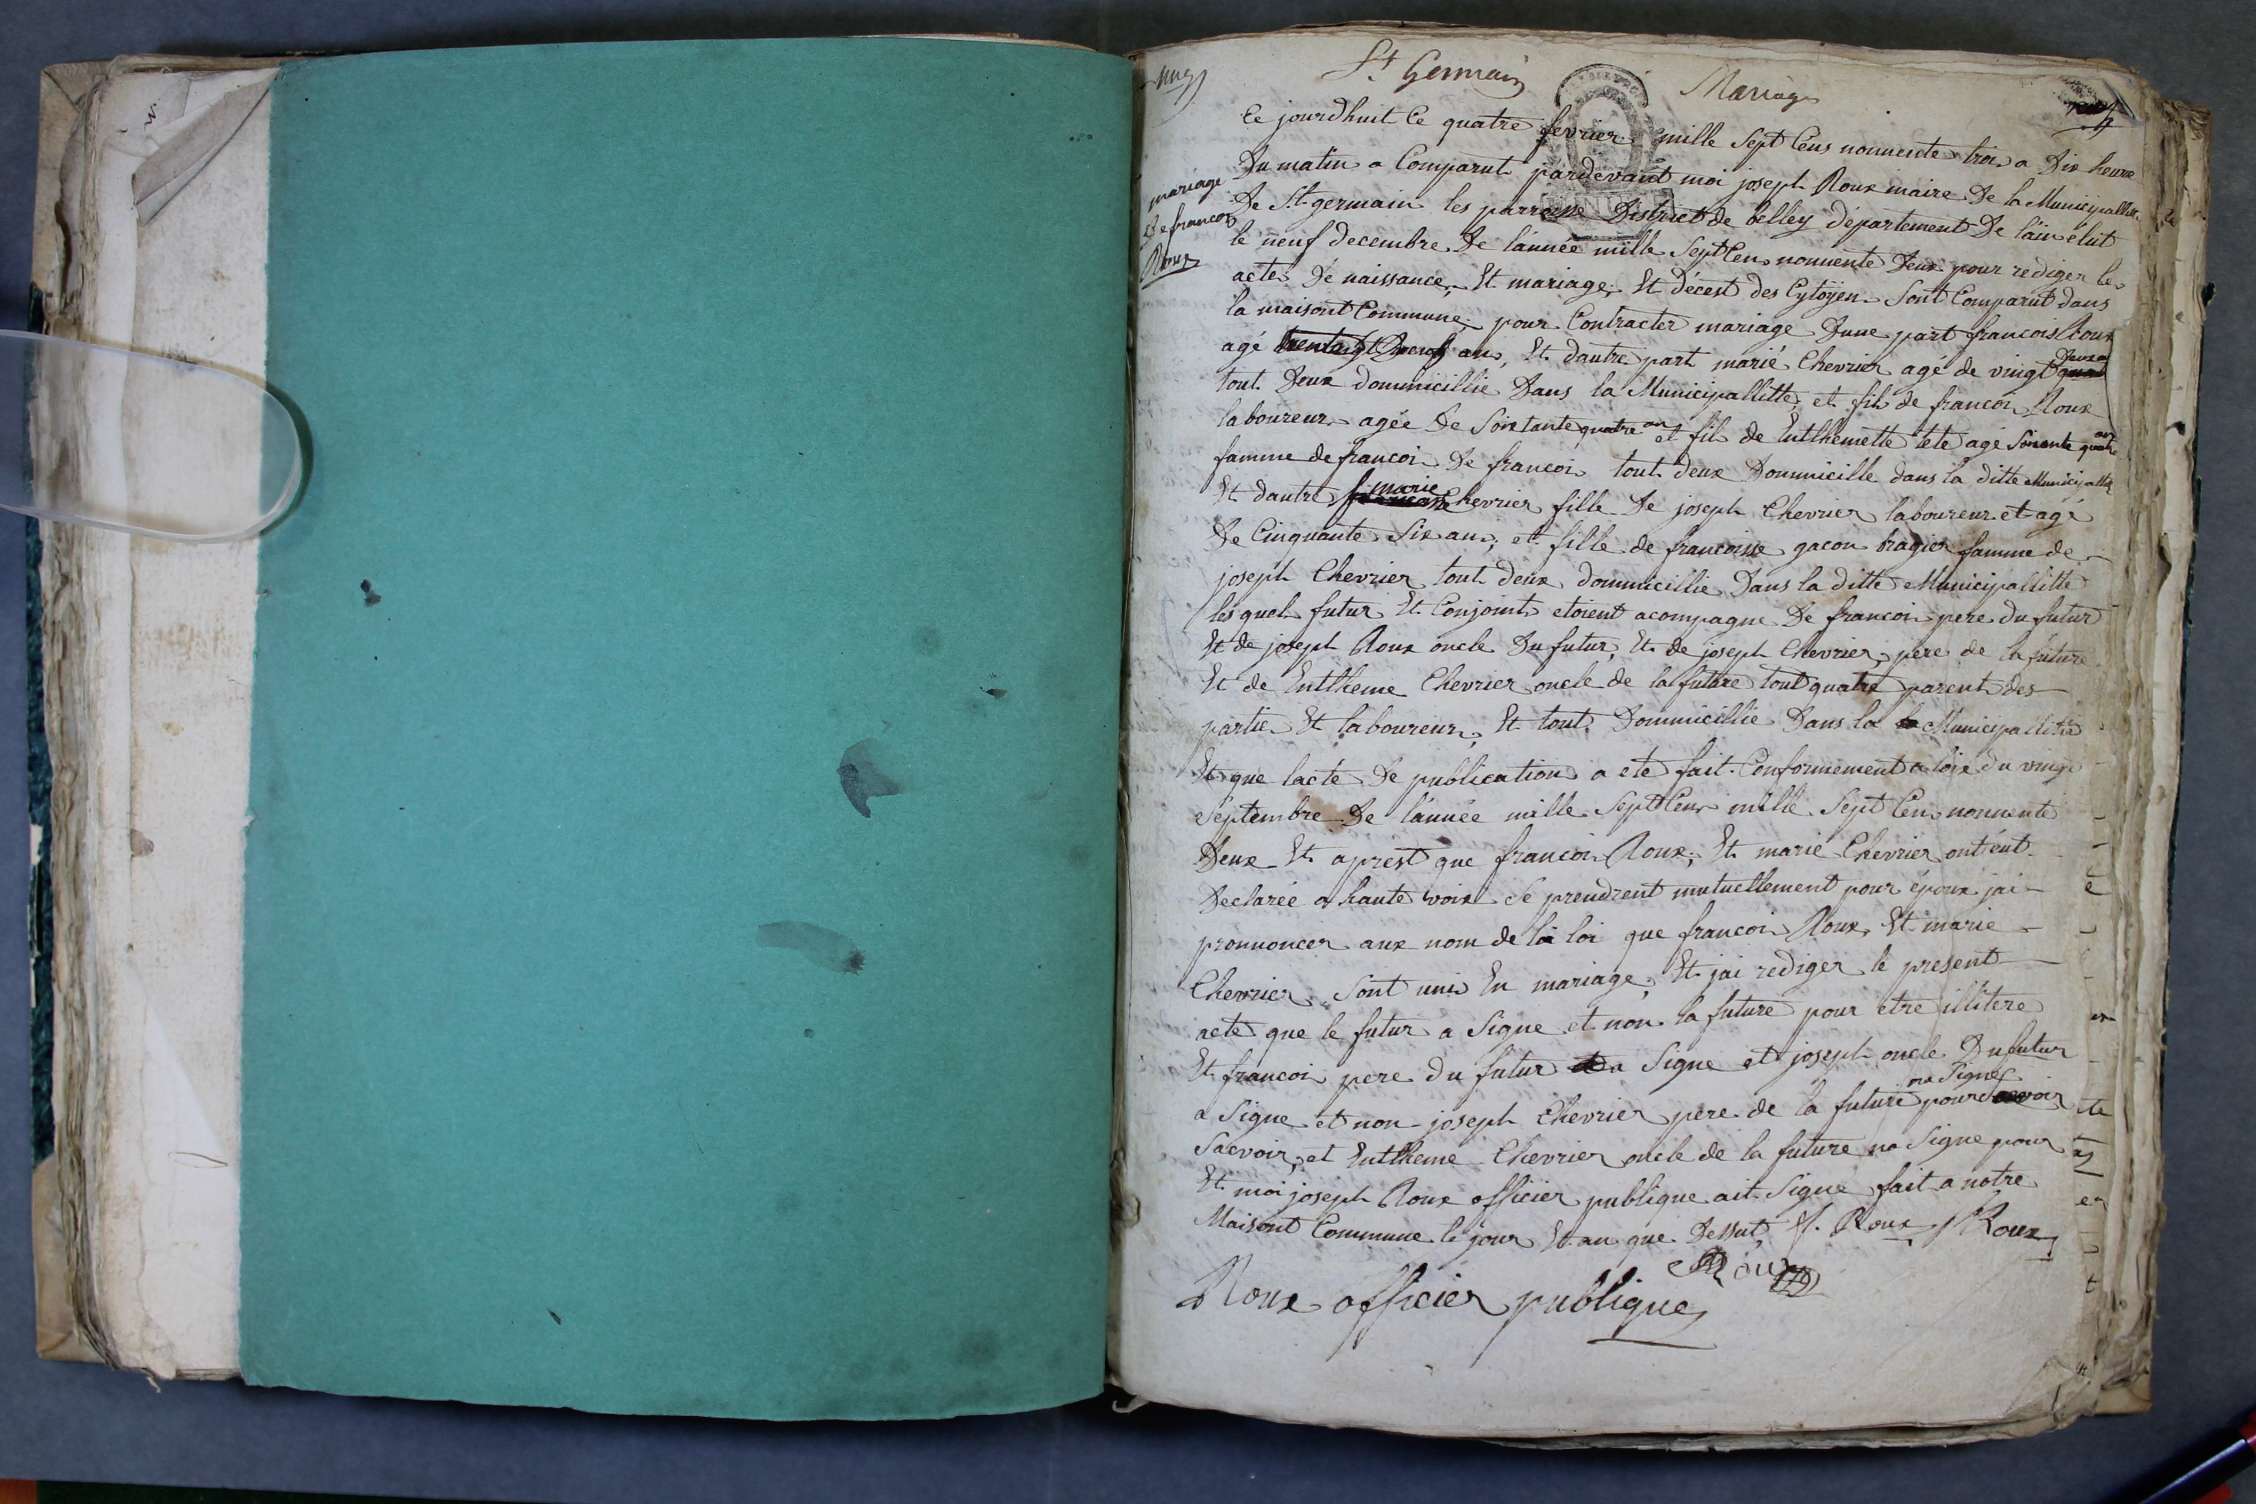 St Germain
Mariage
mariage
De francois
Roux
Ce jourdhuit Ce quatre fevrier mille Sept Cens nonnente trois a Dix heure
Du matin a Comparut pardevant moi joseph Roux maire De la Municipallitte
De St germain les parroisse District de belley département De l'ain élut
le neuf decembre De l'année mille Sept Cens nonnente Deux pour rediger les
actes De naissance, Et mariage, Et décest des Cytoÿen Sont Comparut dans
la maisont Commune, pour Contracter mariage Dune part francois Roux
agé ans, Et dautre part marié Chevrier agé de vingt Deux an
tout Deux dommicillie Dans la Municipallitte, et fils de francois Roux
laboureur agée De Soixtante quatre an et fils de Eutthemette tete agé Soixente quatre an
famme de francois De francois tout deux Dommicille dans la ditte Municipallitte
Et dautre marie Chevrier fille De joseph Chevrier laboureur et agé
De Cinquante Six ans, et fille de francoisse gacon bragier famme de
joseph Chevrier tout deux dommicillie Dans la ditte Municipallitte
lesquel futur Et Conjoint etoient acompagne De francois pere du futur
Et de joseph Roux oncle Du futur, Et de joseph Chevrier pere de la future
Et de Eutheme Chevrier oncle de la future tout quatre parent des
partie Et laboureur, Et tout Dommicillie Dans la Municipallitte
Et que lacte De publication a ete fait Conformement a loix du vingt
séptembre De l'année mille Sept Cens mille Sept Cens nonnente
Deux Et aprest que francois Roux, Et marié Chevrier ont éut
Declarée a haute voix Se prendrent mutuellement pour époux jai
pronnoncer aux nom de la loi que francois Roux Et marie
Chevrier Sont unis En mariage, Et jai rediger le present
acte que le futur a Signe et non la future pour etre illitere
Et francois pere du futur a Signe et joseph oncle Du futur
a Signe et non joseph Chevrier pere de la future na Signe pour
Sacvoir, et Eutheme Chevrier oncle de la future na Signe pour
Et moi joseph Roux officier publique ait Signe fait a notre
Maisont Commune le jour Et an que Dessut f. Roux J Roux
Roux
Roux officier publique